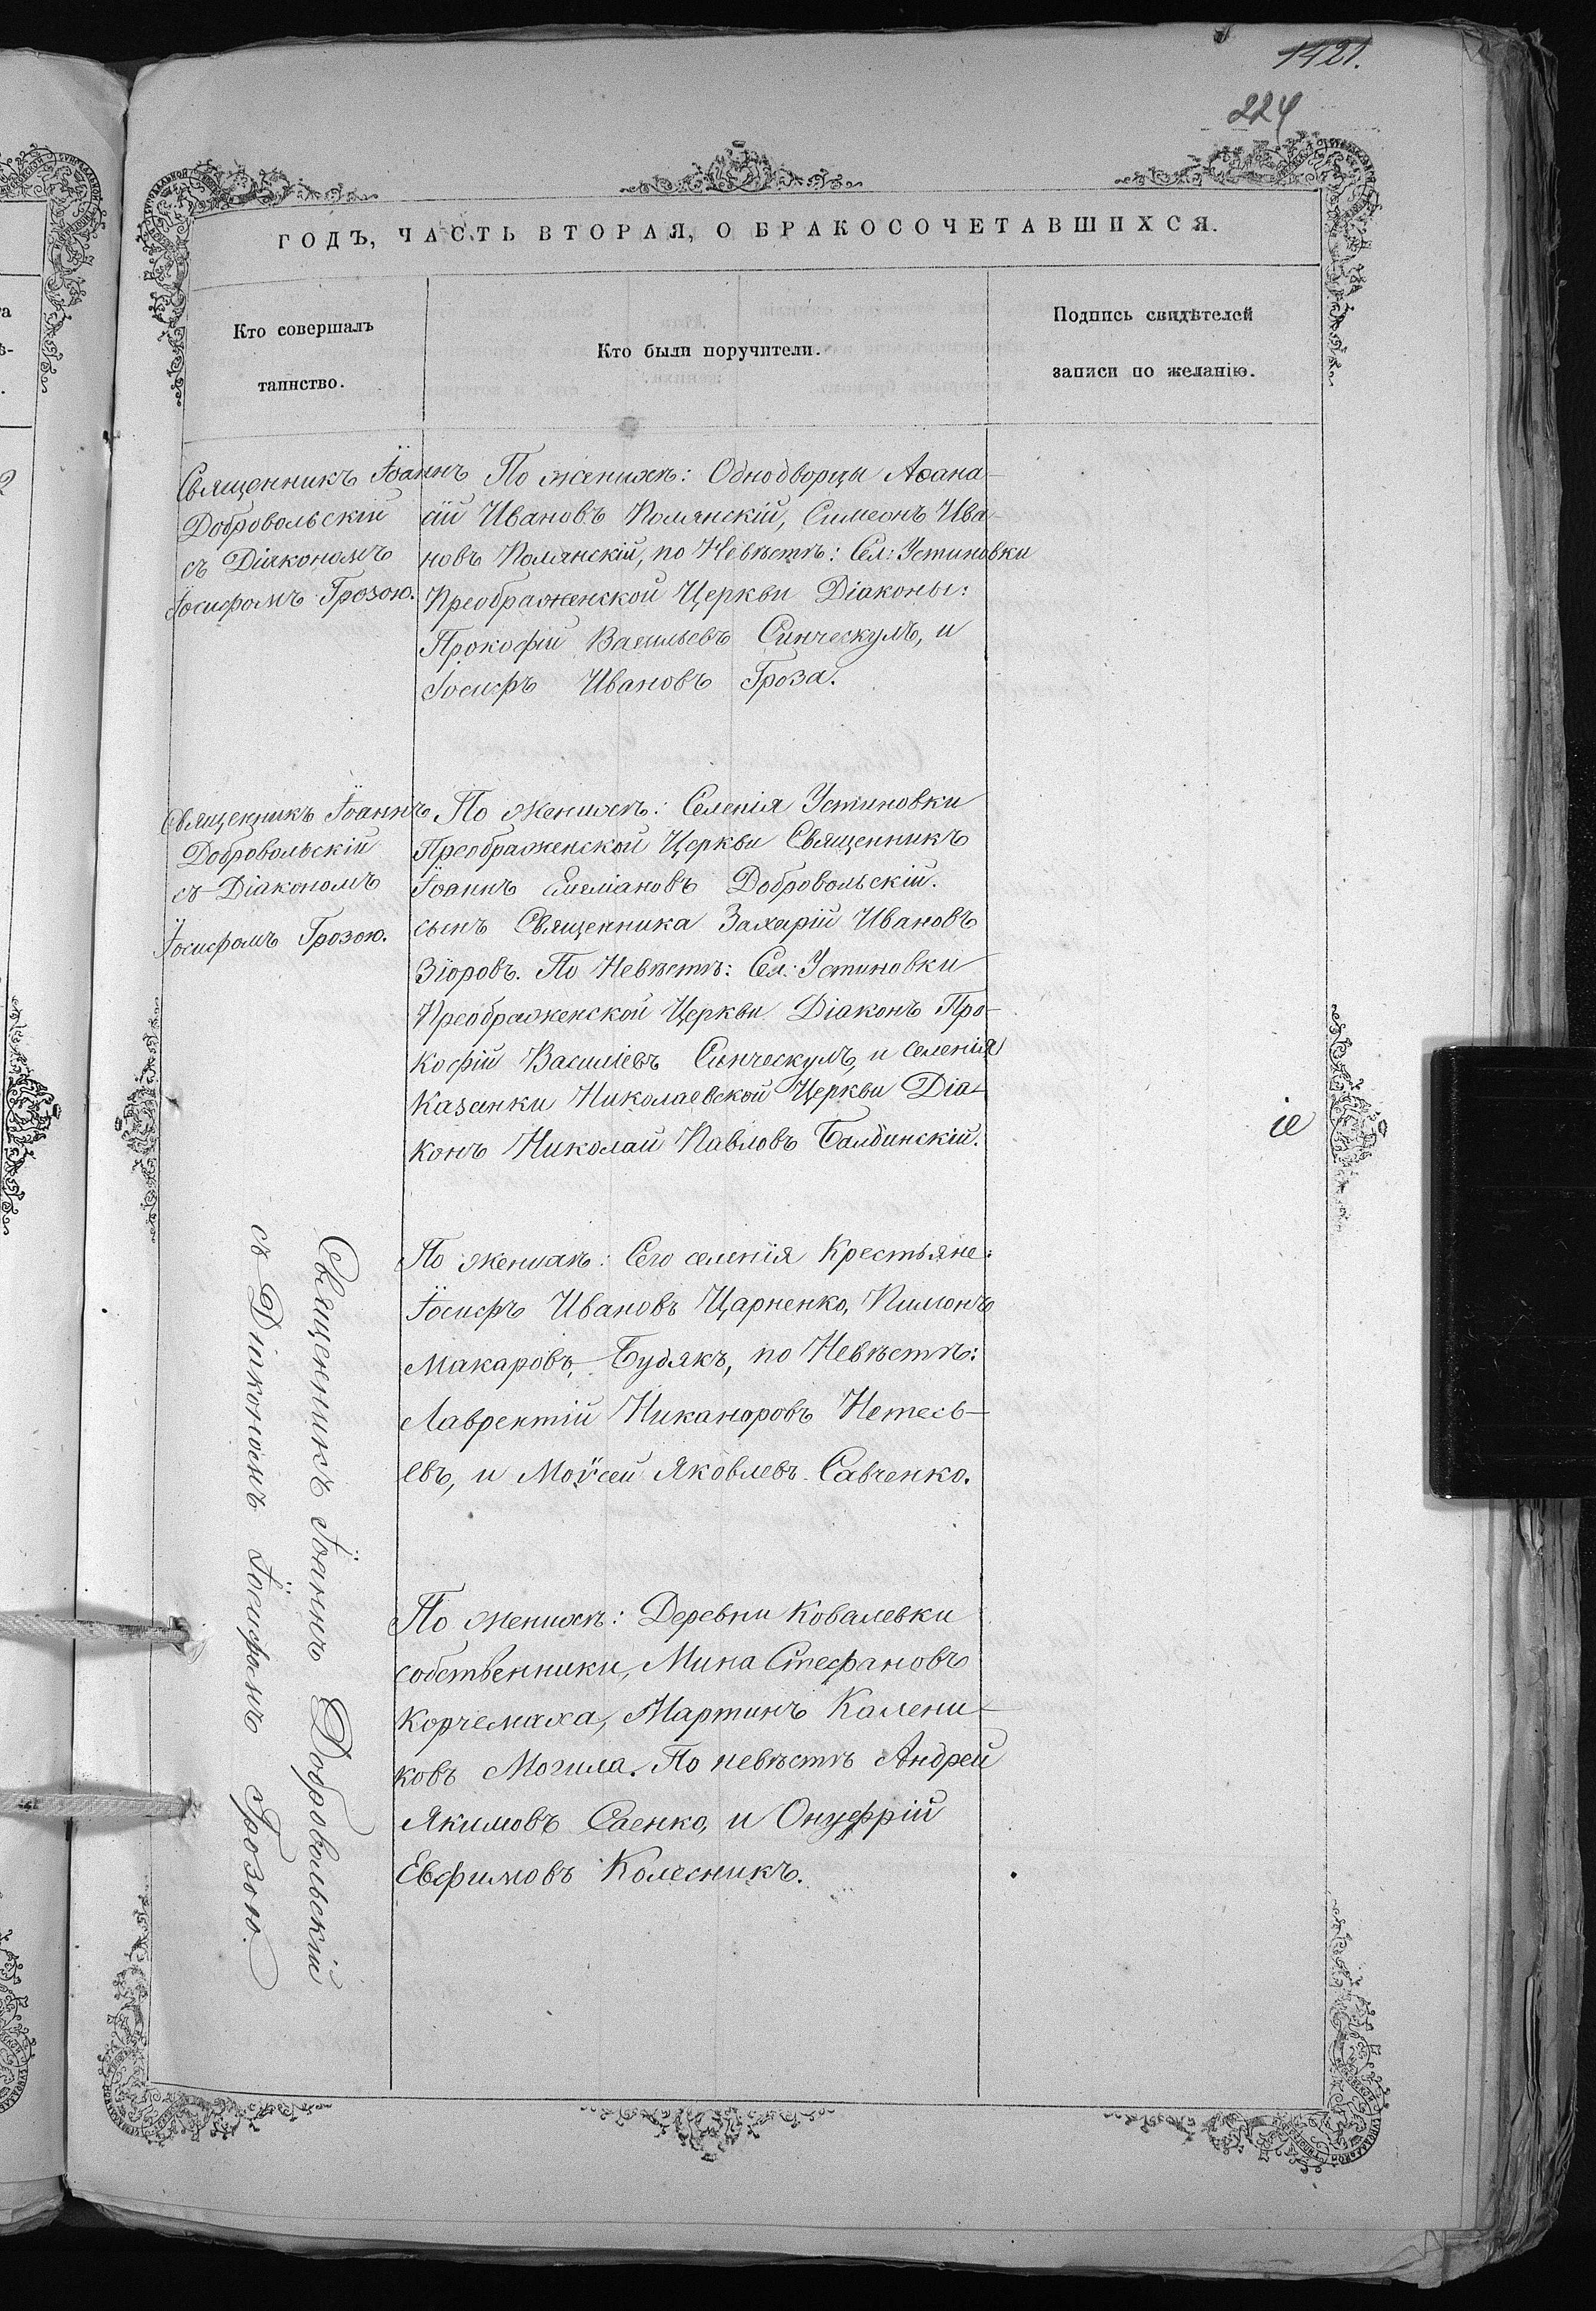 1421.
224
ГОДЪ, ЧАСТЬ ВТОРАЯ, О БРАКОСОЧЕТАВШИХСЯ.
Кто совершалъ
таинство.
Кто были поручители.
Подпись свидѣтелей
записи по желанію.
Священникъ Іоаннъ
Добровольскій
съ Діакономъ
Іосифомъ Грозою.
По женихѣ: Однодворцы Аѳана-
сій Ивановъ Полянскій, Симеонъ Ива-
новъ Полянскій, по Невѣстѣ: Сел: Устиновки
Преображенской Церкви Діаконы:
Прокофій Васильевъ Синческулъ, и
Іосифъ Ивановъ Гроза.
Священникъ Іоаннъ
Добровольскій
съ Діакономъ
Іосифомъ Грозою.
По женихѣ: Селенія Устиновки
Преображенской Церкви Священникъ
Іоаннъ Емеліановъ Добровольскій.
сынъ Священника Захарій Ивановъ
По Невѣстѣ: Сел: Устиновки
Преображенской Церкви Діаконъ Про-
кофій Василіевъ Синческулъ, и селенія
Казанки Николаевской Церкви Діа-
конъ Николай Павловъ Балдинскій.
іе
Священникъ Іоаннъ Добровольскій
съ Діакономъ Іосифомъ Грозою.
По женихѣ: Сего селенія Крестьяне:
Іосифъ Ивановъ Царненко, Пимонъ
Макаровъ, Будякъ, по Невѣстѣ:
Лаврентій Никаноровъ Нетесь-
евъ, и Моѵсей Яковлевъ Савченко.
По женихѣ: Деревни Ковалевки
собственники, Мина Стефановъ
Корчемаха, Мартинъ Калени-
ковъ Могила. По невѣстѣ Андрей
Якимовъ Саенко, и Онуфрій
Евфимовъ Колесникъ.